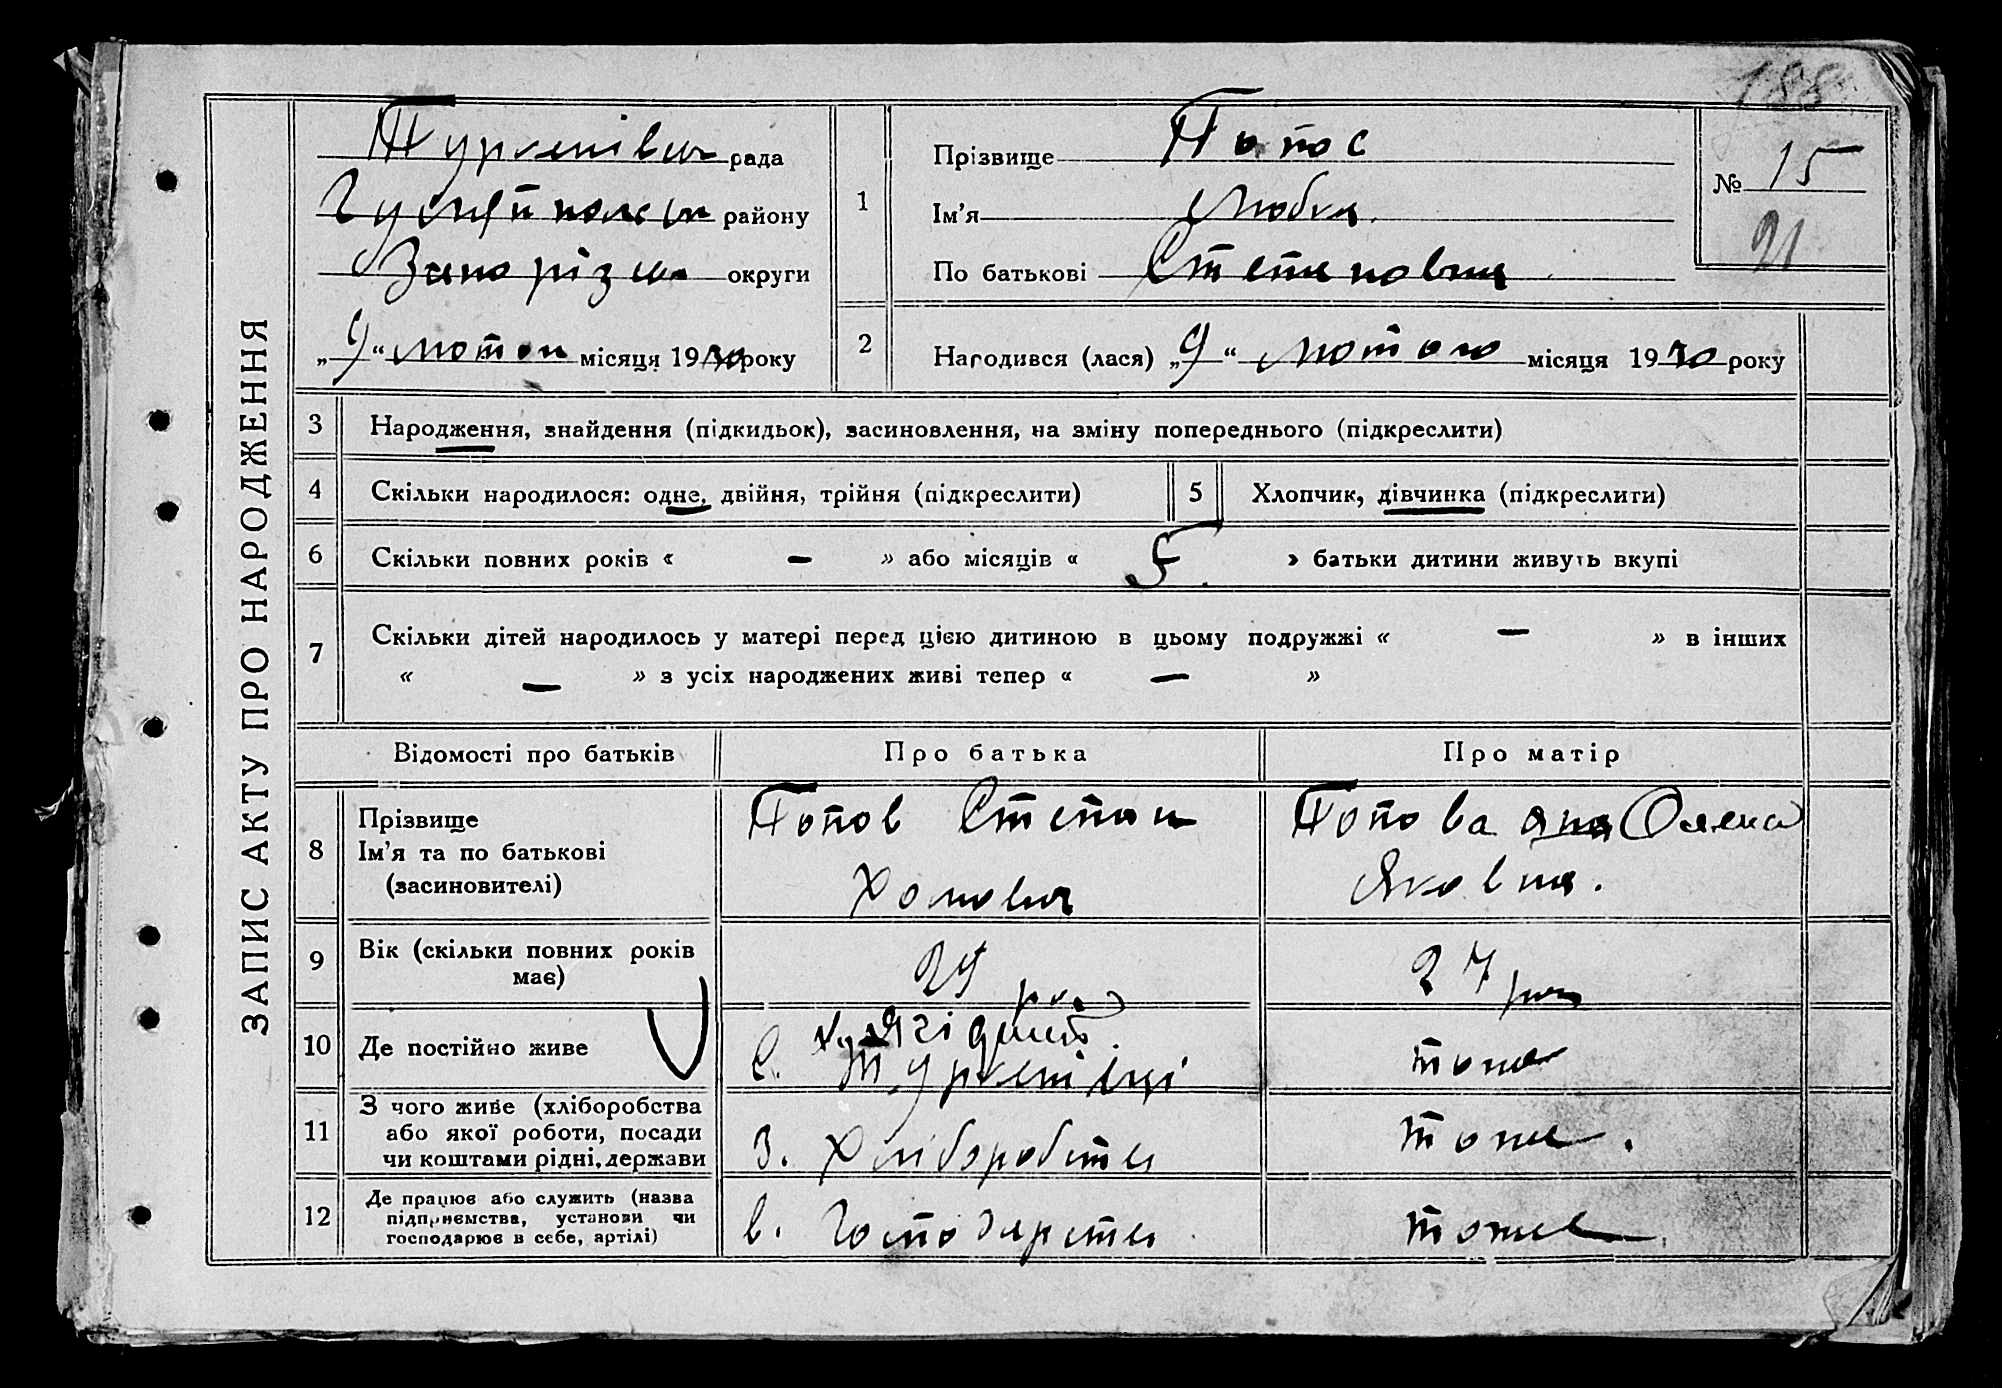 188
ЗАПИС АКТУ ПРО НАРОДЖЕННЯ
Туркенівка рада
Гуляйпольськ району
Запорізька округи
„9“ лютого місяця 1930 року
1
Прізвище Попов
Ім'я Любка
По батькові Степановна
№ 15
91
2
Народився (лася) „9“ лютого місяця 1930 року
3 Народження, знайдення (підкидьок), засиновлення, на зміну попереднього (підкреслити)
4 Скільки народилося: одне, двійня, трійня (підкреслити)
5 Хлопчик, дівчинка (підкреслити)
6 Скільки повних років « — » або місяців « 5 » батьки дитини живуть вкупі
7 Скільки дітей народилось у матері перед цією дитиною в цьому подружжі « — » в інших
« — » з усіх народжених живі тепер « — »
Відомості про батьків
Про батька
Про матір
8
Прізвище
Ім'я та по батькові
(засиновителі)
Попов Степан
Хомович
Попова Олена
Яковна.
9
Вік (скільки повних років
має)
29 рок.
27 рок
10 Де постійно живе
с. Туркенівці
тоже
11
З чого живе (хліборобства
або якої роботи, посади
чи коштами рідні, держави
З. Хліборобства
тоже.
12
Де працює або служить (назва
підприємства, установи чи
господарює в себе, артілі)
в. Господарства
тоже.